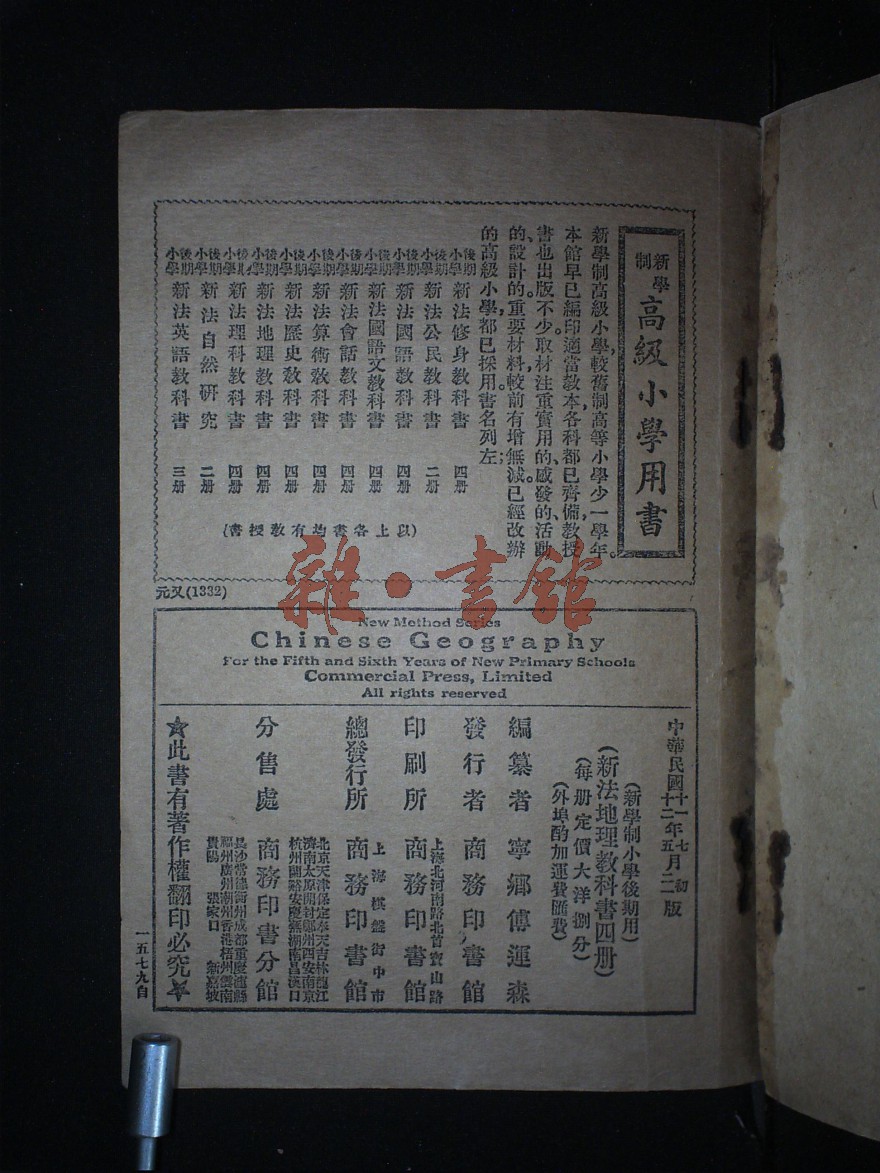 新學制
高級小學用書
新學制高級小學,較舊制高等小學少一學年。
本館早已編印適當教本,各科都已齊備,教授
書也出版不少。取材注重實用的、感發的、活動
的、設計的。重要材料,較前有增無減。已經改辦
的高級小學,都已採用。書名列左:
後期小學 新法修身教科書 四册
後期小學 新法公民教科書 二册
後期小學 新法國語教科書 四册
後期小學 新法國語文教科書 四册
後期小學 新法會話教科書 四册
後期小學 新法算術教科書 四册
後期小學 新法歷史教科書 四册
後期小學 新法地理教科書 四册
後期小學 新法理科教科書 四册
後期小學 新法自然研究 二册
後期小學 新法英語教科書 三册
(以上各書均有教授書)
元又(1332)
雜·書館
New Method Series
Chinese Geography
For the Fifth and Sixth Years of New Primary Schools
Commercial Press, Limited
All rights reserved
中華民國十一年七月初版
十二年五月二版
(新學制小學後期用)
(新法地理教科書四册)
(每册定價大洋捌分)
(外埠酌加運費匯費)
編纂者 寧鄉傅運森
發行者 商務印書館
印刷所 上海北河南路北首寶山路 商務印書館
總發行所 上海棋盤街中市 商務印書館
分售處 商務印書分館
北京天津保定奉天吉林龍江
濟南太原開封鄭州西安南京
杭州蘭谿安慶蕪湖南昌漢口
長沙常德衡州成都重慶瀘縣
福州廣州潮州香港梧州雲南
貴陽 張家口 新嘉坡
★此書有著作權翻印必究★
一五七九自